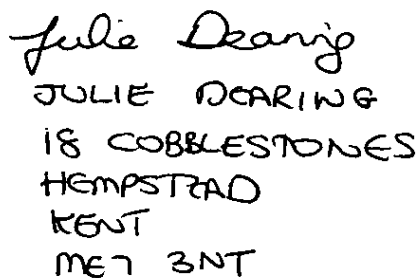 Julie Dearing
JULIE DEARING
18 COBBLESTONES
HEMPSTEAD
KENT
ME7 3NT